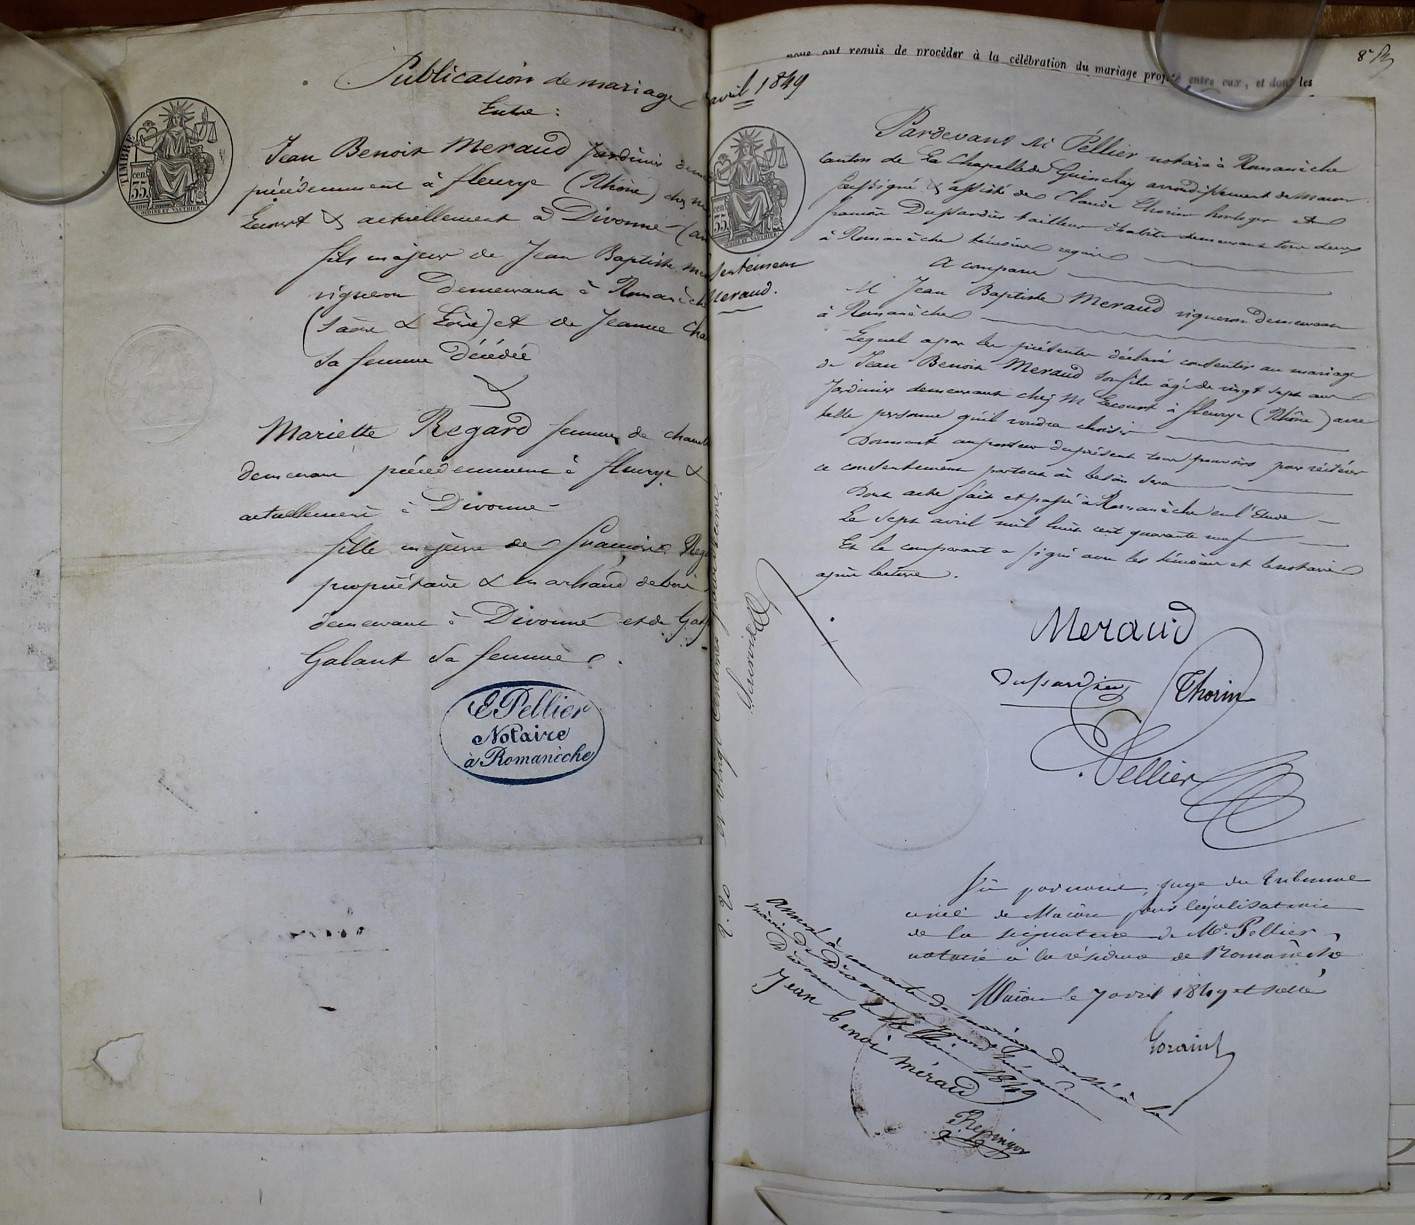 Publication de mariage
Entre :
Jean Benoit Meraud Jardinier
précédemment à fleurye (Rhône) chez
Lecourt & actuellement à Divonne (
fils majeur de Jean Baptiste
vigneron demeurant à Romanèch
(Saône & Loire) et de Jeanne
Sa femme décédée
Mariette Regard femme de
demeurant précédemment à fleurye &
actuellement à Divonne
fille majeure de françoise
propriétaire & marchand de bois
demeurant à Divonne et de
Galant Sa femme.
TIMBRE
35
E Pellier
Notaire
à Romanèche
nous ont requis de procéder à la célébration du mariage projeté entre eux, et dont les
avril 1849
35
Meraud.
Pardevant Me Pellier notaire à Romanèche
canton de La Chapelle de Guinchay arrondissement de Macon
Soussigné & assisté de Claude Thorin horloger et
françois Dussardier tailleur d'habits demeurant tous deux
à Romanèche témoins requis
A comparu
M Jean Baptiste Meraud vigneron demeurant
à Romanèche
Lequel a par les présentes déclaré consentir au mariage
de Jean Benoit Meraud son fils âgé de vingt sept ans
Jardinier demeurant chez M Lecourt à fleurye (Rhône) avec
telle personne qu'il voudra choisir
Donnant au porteur du présent tous pouvoirs pour réitérer
ce consentement partout où besoin sera
Dont acte fait et passé à Romanèche en l'Etude
Le sept avril mil huit cent quarante neuf
Et le comparant a signé avec les témoins et le notaire
après lecture.
Meraud
Thorin
Pellier
Vu par nous, juge du tribunal
civil de Macon pour légalisation
de la signature de Me Pellier
notaire à la résidence de Romanèche
Macon le 7 avril 1849
annexé à un acte de mariage
mairie de Divonne
Divonne le 1849
Jean benoi méraud